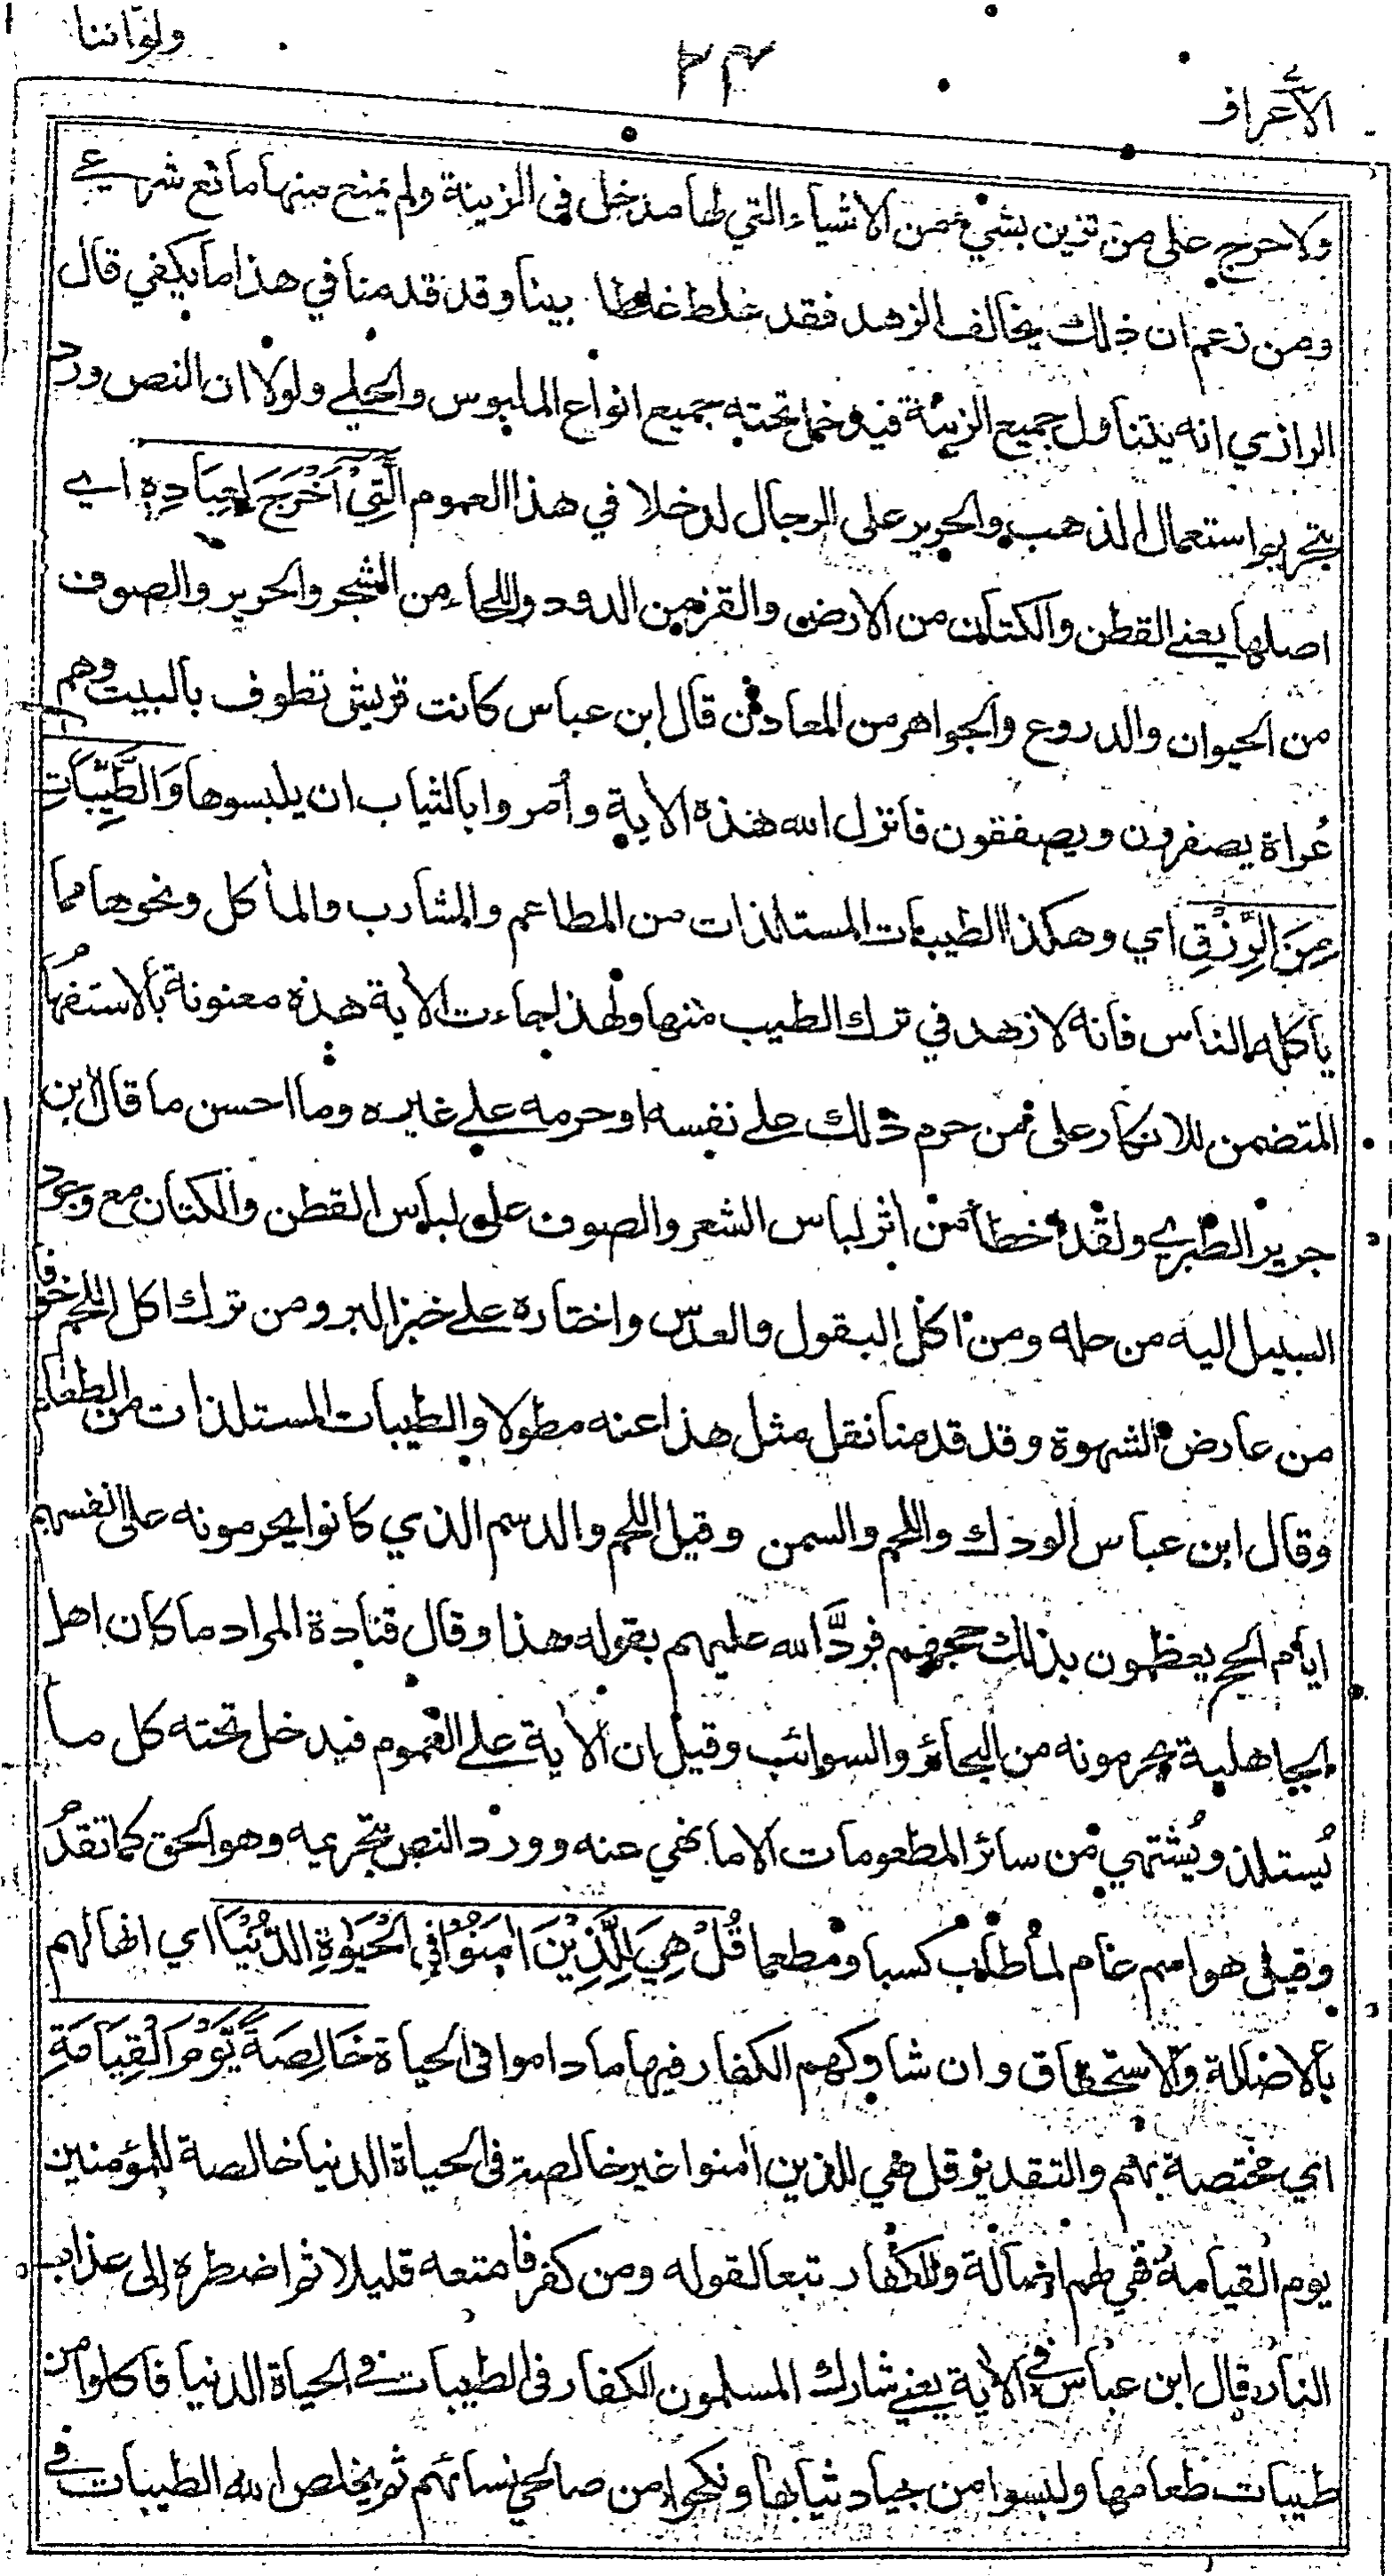 ولواننا
٢٣
الأعراف
ولا حرج على من تزين بشيء من الاشياء التي لها مدخل في الزينة ولم يمنع منها مانع شرعي
ومن زعم ان ذلك يخالف الزهد فقد غلط غلطا بينا وقد قدمنا في هذا ما يكفي قال
الرازي انه يتناول جميع الزينة فيدخل تحته جميع انواع الملبوس والحلي ولولا ان النص ورد
بتحريم استعمال الذهب والحرير على الرجال لدخلا في هذا العموم الَّتِيْ اَخْرَجَ لِعِبَادِهٖ اي
اصلها يعني القطن والكتان من الارض والقز من الدود واللحاء من الشجر والحرير والصوف
من الحيوان والدروع والجواهر من المعادن قال ابن عباس كانت قريش تطوف بالبيت وهم
عُراة يصفرون ويصفقون فانزل الله هذه الأية وأمروا بالثياب ان يلبسوها وَالطَّيِّبَاتِ
مِنَ الرِّزْقِ اي وهكذا الطيبات المستلذات من المطاعم والمشارب والمأكل ونحوها مما
يأكله الناس فانه لا زهد في ترك الطيب منها ولهذا جاءت الأية هذه معنونة بالاستفهام
المتضمن للانكار على من حرم ذلك على نفسه او حرمه على غيره وما احسن ما قال ابن
جرير الطبري ولقد اخطأ من اثر لباس الشعر والصوف على لباس القطن والكتان مع وجود
السبيل اليه من حله ومن اكل البقول والعدس واختاره على خبز البر ومن ترك اكل اللحم خوفا
من عارض الشهوة وقد قدمنا نقل مثل هذا عنه مطولا والطيبات المستلذات من الطعام
وقال ابن عباس الودك واللحم والسمن وقيل اللحم والدسم الذي كانوا يحرمونه على انفسهم
ايام الحج يعظمون بذلك حجهم فردَّ الله عليهم بقوله هذا وقال قتادة المراد ما كان اهل
الجاهلية يحرمونه من البحائر والسوائب وقيل ان الأية على العموم فيدخل تحته كل ما
يُستلذ ويُشتهي من سائر المطعومات الا ما نهي عنه وورد النص بتحريمه وهو الحق كما تقدم
وقيل هو اسم عام لما طاب كسبا ومطعما قُلْ هِيَ لِلَّذِيْنَ اٰمَنُوْا فِي الْحَيٰوةِ الدُّنْيَا اي انها لهم
بالاصالة والاستحقاق وان شاركهم الكفار فيها ما داموا في الحياة خَالِصَةً يَّوْمَ الْقِيَامَةِ
اي مختصة بهم والتقدير قل هي للذين امنوا غير خالصة في الحياة الدنيا خالصة للمؤمنين
يوم القيامة فهي لهم اصالة وللكفار تبعا لقوله ومن كفر فامتعه قليلا ثم اضطره إلى عذاب
النار قال ابن عباس في الأية يعني شارك المسلمون الكفار في الطيبات في الحياة الدنيا فاكلوا من
طيبات طعامها ولبسوا من جياد ثيابها ونكحوا من صالحي نسائهم ثم يخلص الله الطيبات في